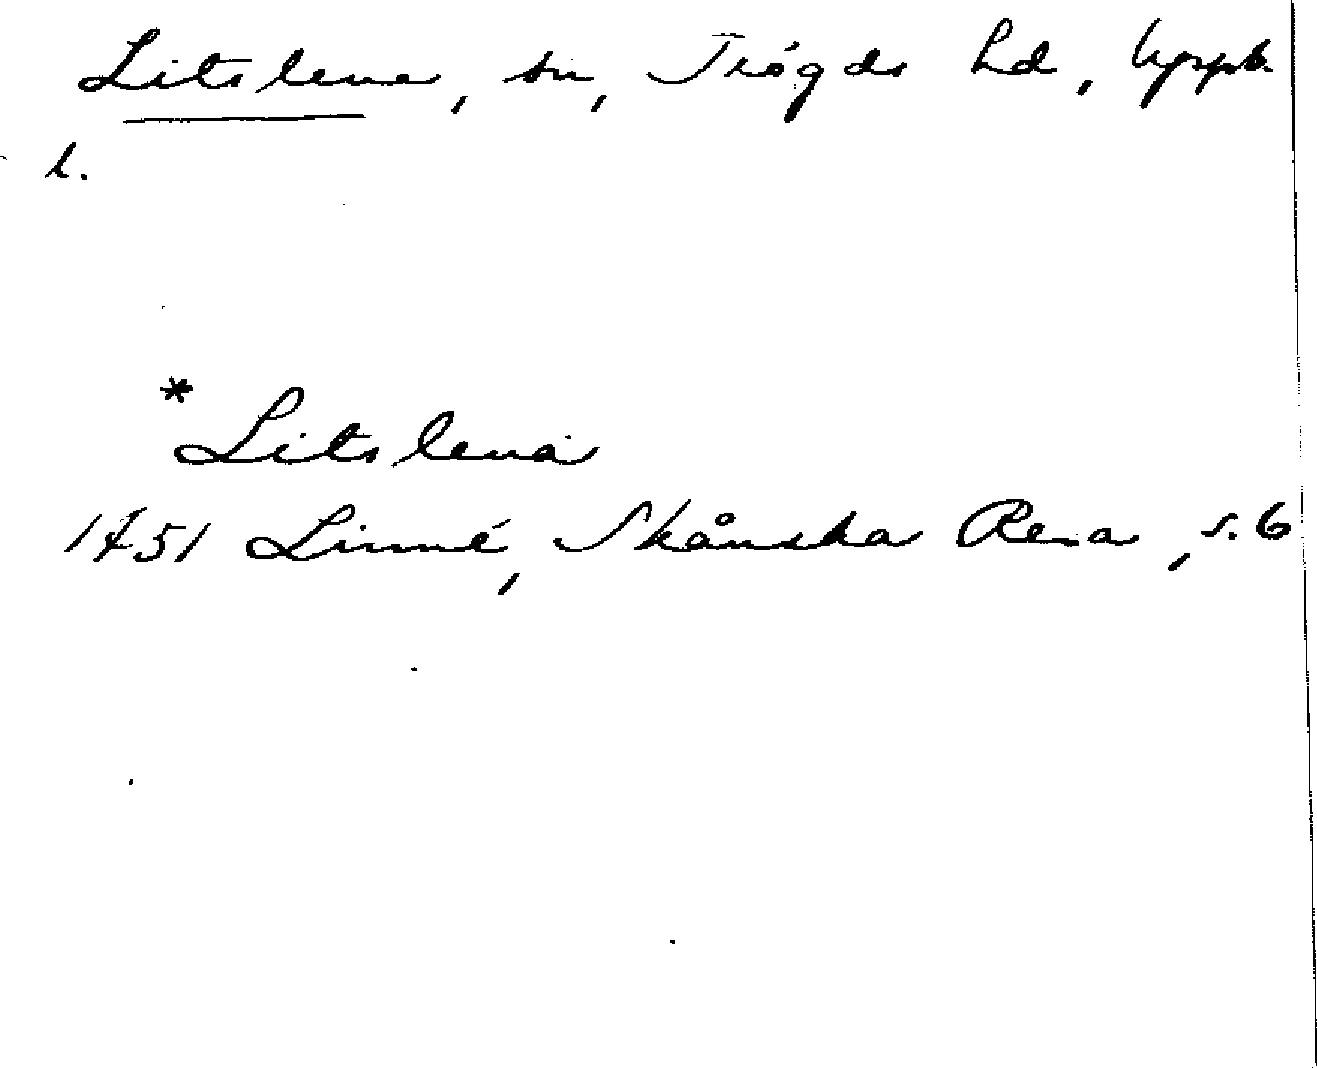 Litslena, sn, Trögds hd, Uppl.
l.
*Litslena
1751 Linné, Skånska Resa, s. 6